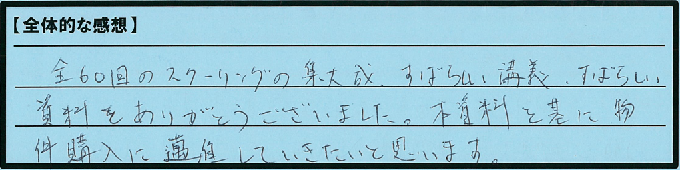 【全体的な感想】
全60回のスクーリングの集大成、すばらしい講義、すばらしい
資料をありがとうございました。本資料を基に物
件購入に邁進していきたいと思います。